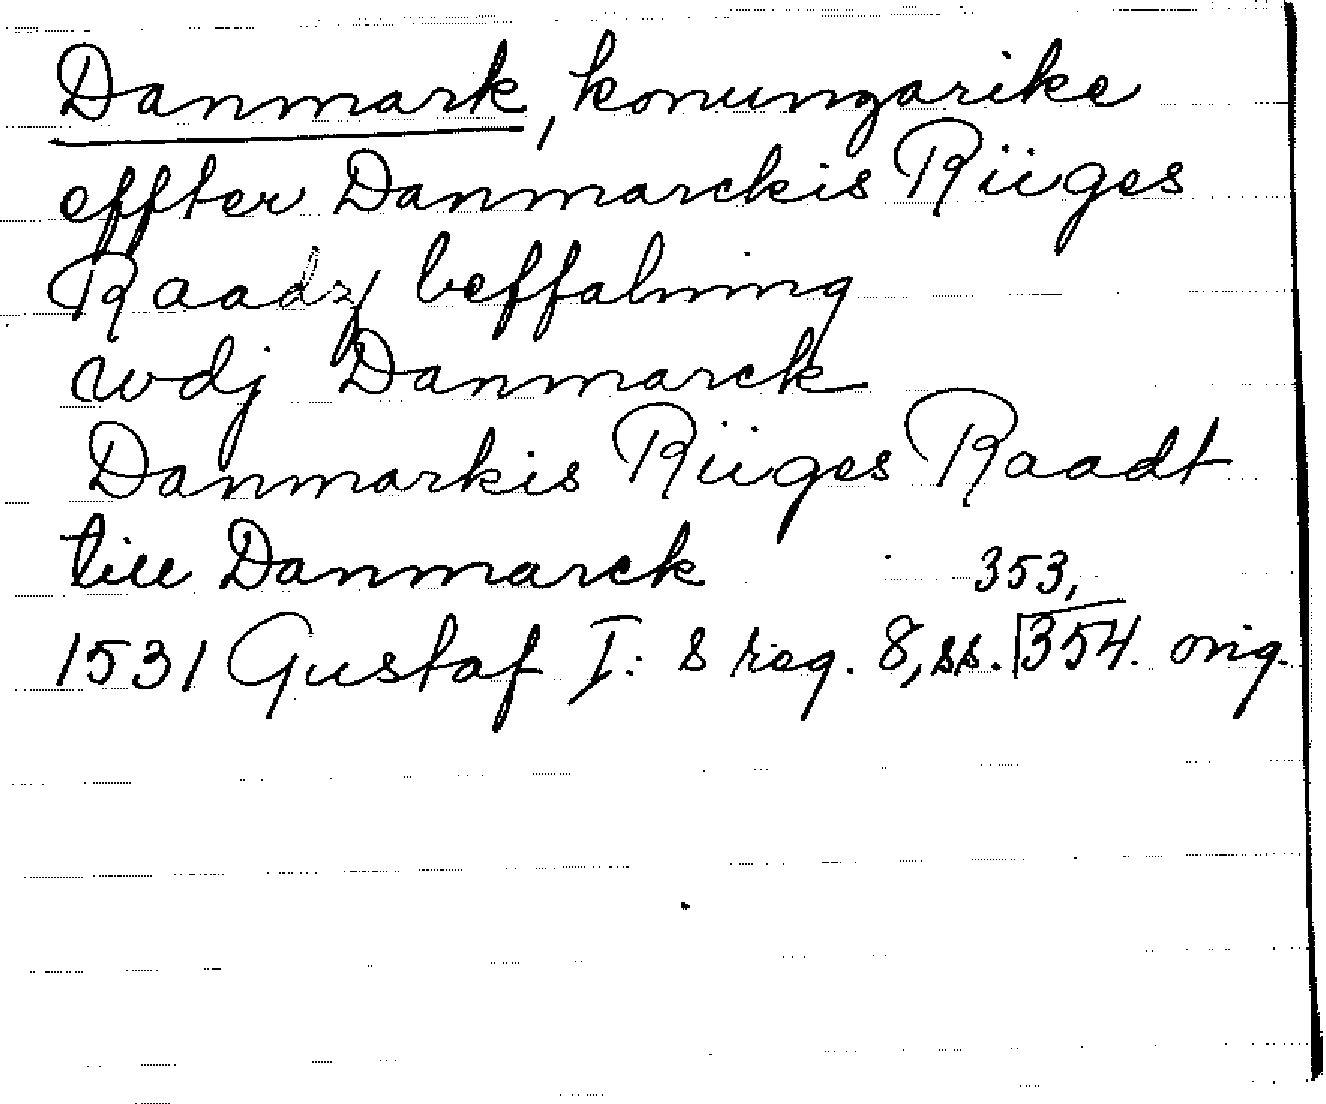 Danmark, konungarike
effter Danmarckis Riiges
Raadz beffalning
wdj Danmarck
Danmarkis Riiges Raadt
till Danmarck 353,
1531 Gustaf I:s reg. 8, ss. 354. orig.